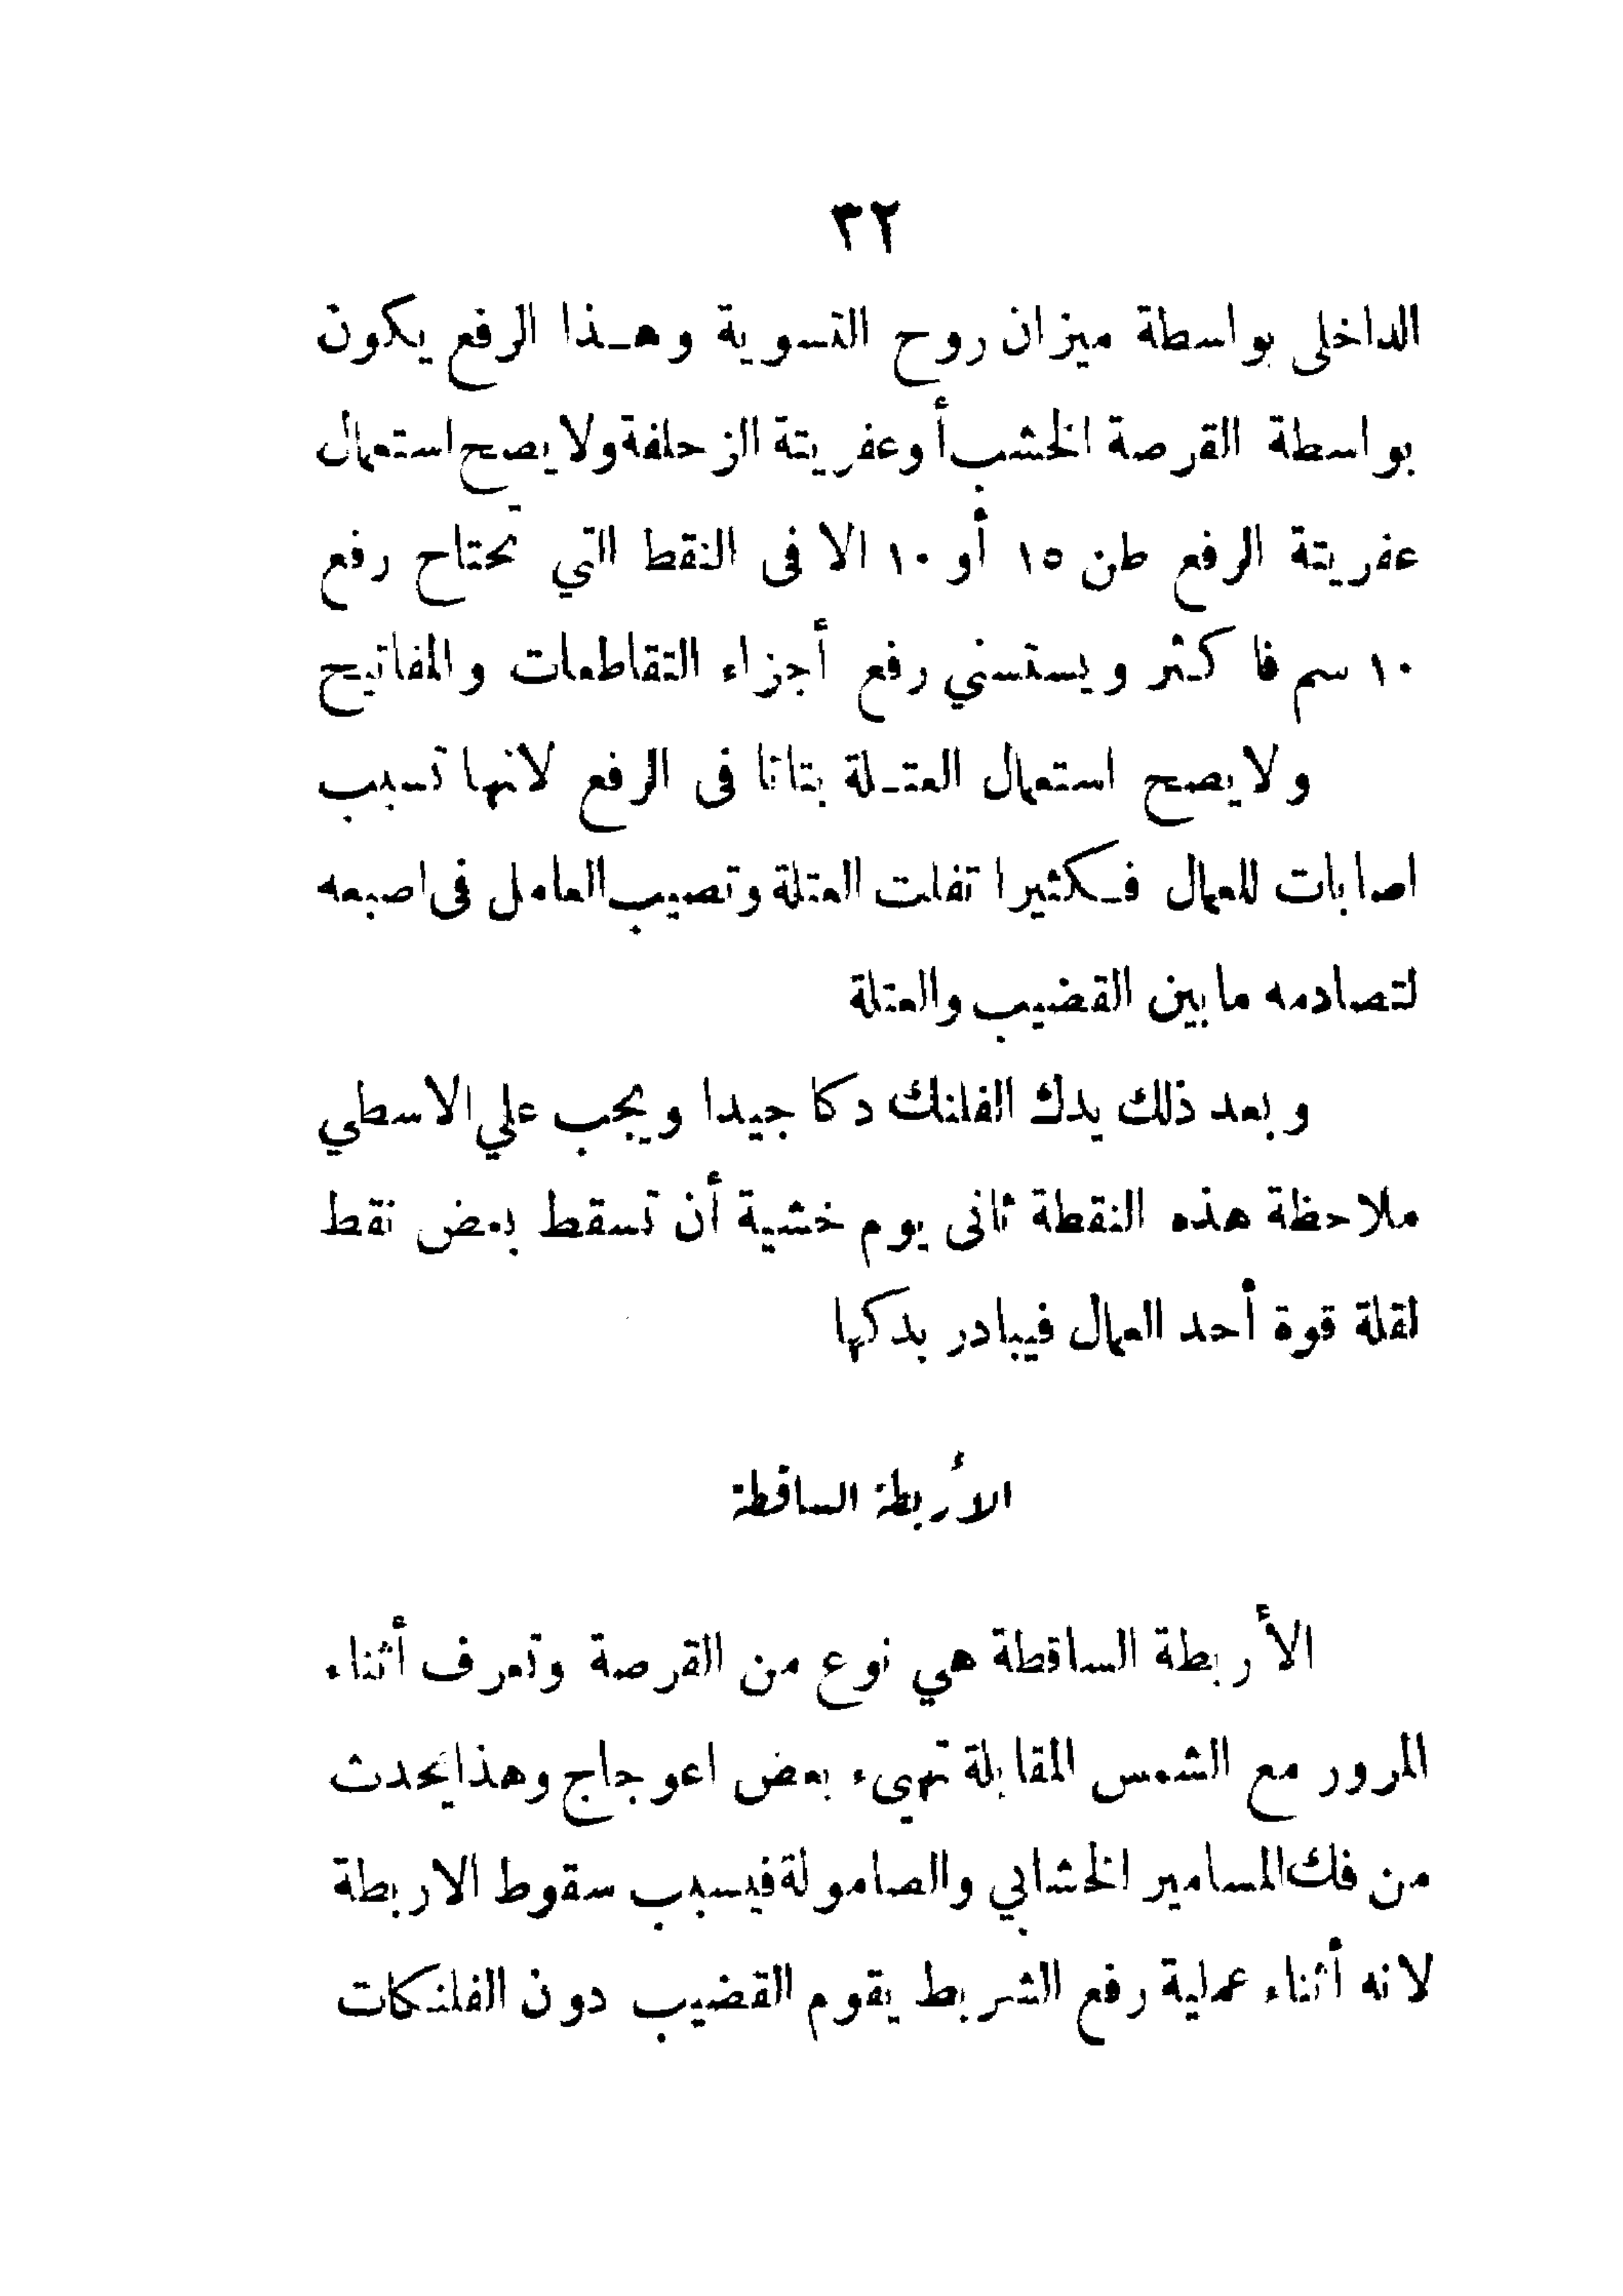 ٣٢
الداخلى بواسطة ميزان روح التسوية وهـذا الرفع يكون
بواسطة القرصة الخشب أوعفريتة الزحلفة ولا يصح استعمال
عفريتة الرفع طن ١٥ أو ١٠ الا فى النقط التي تحتاج رفع
١٠ سم فاكثر ويستسني رفع أجزاء التقاطعات والمفاتيح
ولا يصح استعمال العتـلة بتاتا فى الرفع لانها تسبب
اصابات للعمال فـكثيرا تفلت العتلة وتصيب العامل فى اصبعه
لتصادمه مابين القضيب والعتلة
وبعد ذلك يدك الفلنك دكا جيدا ويجب علي الاسطي
ملاحظة هذه النقطة ثانى يوم خشية أن تسقط بعض نقط
لقلة قوة أحد العمال فيبادر بدكها
الأربطة الساقطة
الأربطة الساقطة هي نوع من القرصة وتعرف أثناء
المرور مع الشمس المقابلة تهىء بعض اعوجاج وهذا يحدث
من فك المسامير الخشابي والصامولة فيسبب سقوط الاربطة
لانه أثناء عملية رفع الشريط يقوم القضيب دون الفلنكات